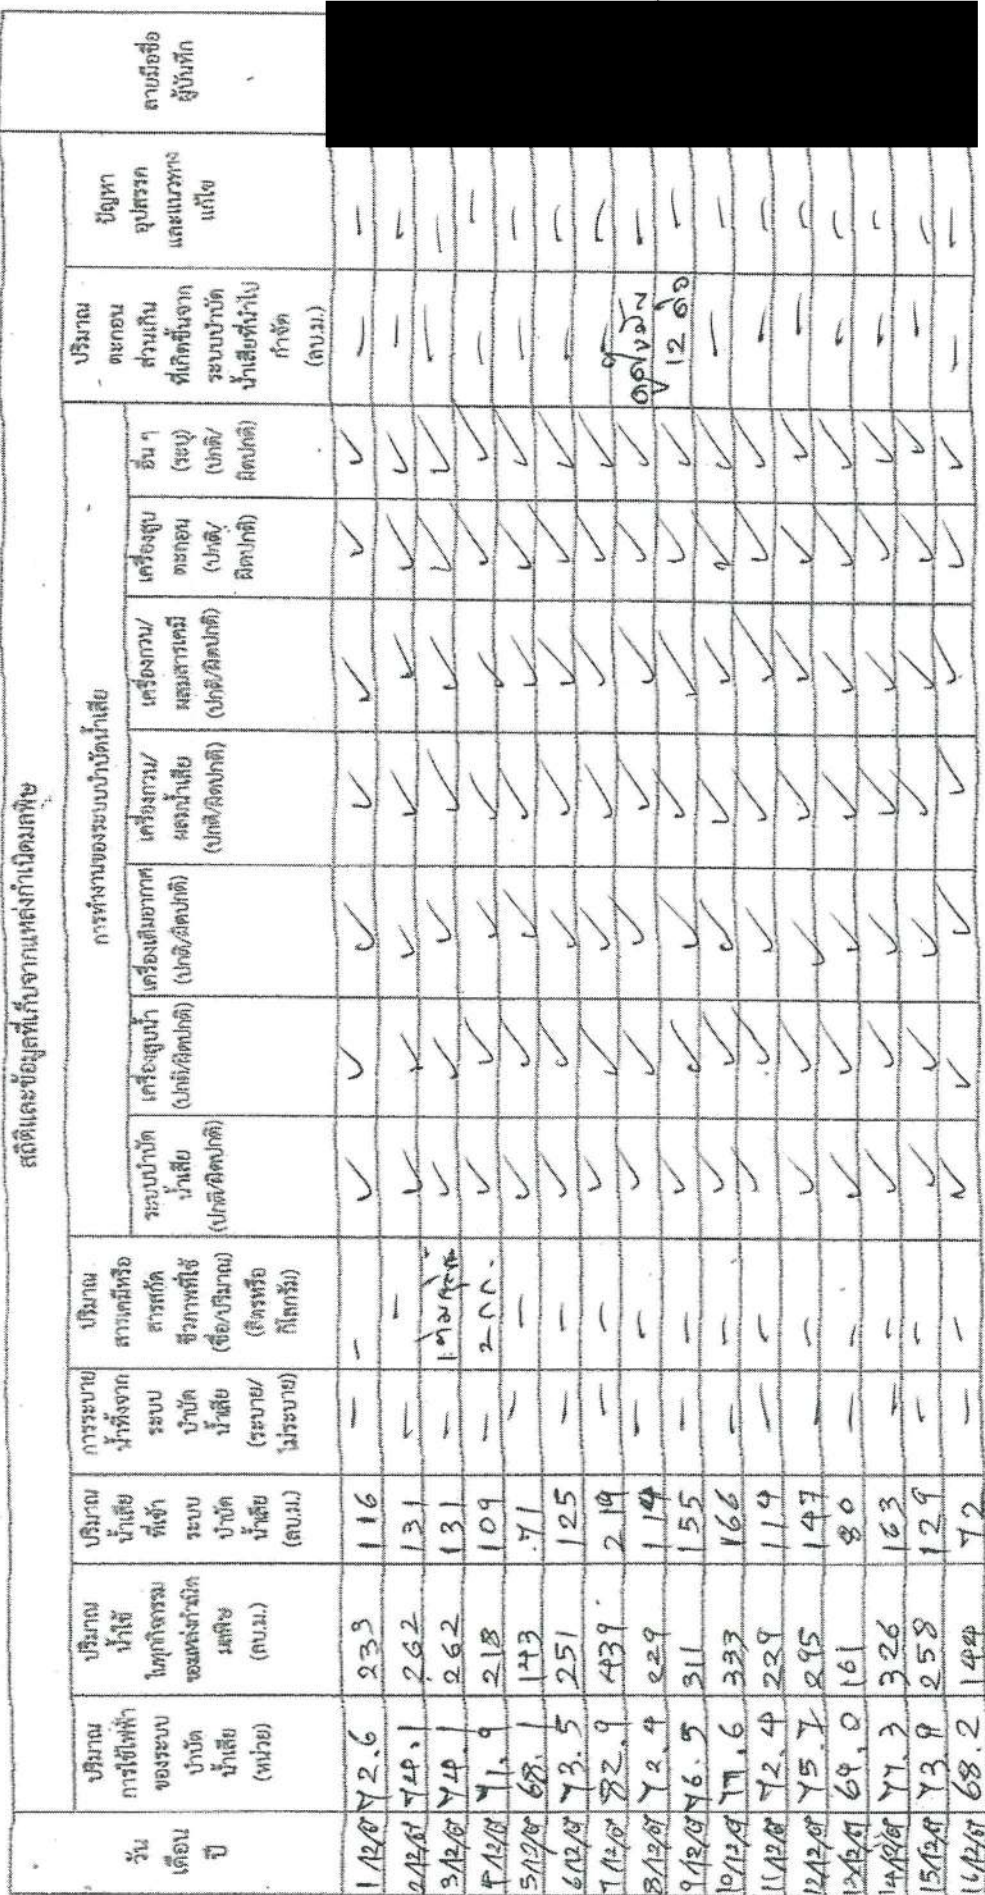 สถิติและข้อมูลที่เก็บจากแหล่งกำเนิดมลพิษ
วัน
เดือน
ปี
ปริมาณ
การใช้ไฟฟ้า
ของระบบ
บำบัด
น้ำเสีย
(หน่วย)
ปริมาณ
น้ำใช้
ในทุกกิจกรรม
ของแหล่งกำเนิด
มลพิษ
(ลบ.ม.)
ปริมาณ
น้ำเสีย
ที่เข้า
ระบบ
บำบัด
น้ำเสีย
(ลบ.ม.)
การระบาย
น้ำทิ้งจาก
ระบบ
บำบัด
น้ำเสีย
(ระบาย/
ไม่ระบาย)
ปริมาณ
สารเคมีหรือ
สารสกัด
ชีวภาพที่ใช้
(ชื่อ/ปริมาณ)
(ลิตรหรือ
กิโลกรัม)
การทำงานของระบบบำบัดน้ำเสีย
ระบบบำบัด
น้ำเสีย
(ปกติ/ผิดปกติ)
เครื่องสูบน้ำ
(ปกติ/ผิดปกติ)
เครื่องเติมอากาศ
(ปกติ/ผิดปกติ)
เครื่องกวน/
ผสมน้ำเสีย
(ปกติ/ผิดปกติ)
เครื่องกวน/
ผสมสารเคมี
(ปกติ/ผิดปกติ)
เครื่องสูบ
ตะกอน
(ปกติ/
ผิดปกติ)
อื่น ๆ
(ระบุ)
(ปกติ/
ผิดปกติ)
ปริมาณ
ตะกอน
ส่วนเกิน
ที่เกิดขึ้นจาก
ระบบบำบัด
น้ำเสียที่นำไป
กำจัด
(ลบ.ม.)
ปัญหา
อุปสรรค
และแนวทาง
แก้ไข
ลายมือชื่อ
ผู้บันทึก
72.6 233 116 — — ✓ ✓ ✓ ✓ ✓ ✓ ✓ — —
74.1 262 131 — — ✓ ✓ ✓ ✓ ✓ ✓ ✓ — —
74.1 262 131 — ✓ ✓ ✓ ✓ ✓ ✓ ✓ — —
71.9 218 109 — 2 กก. ✓ ✓ ✓ ✓ ✓ ✓ ✓ — —
68.1 143 71 — — ✓ ✓ ✓ ✓ ✓ ✓ ✓ — —
73.5 251 125 — — ✓ ✓ ✓ ✓ ✓ ✓ ✓ — —
82.9 439 219 — — ✓ ✓ ✓ ✓ ✓ ✓ ✓ — —
72.4 229 114 — — ✓ ✓ ✓ ✓ ✓ ✓ ✓ ดูดไขมัน —
76.5 311 155 — — ✓ ✓ ✓ ✓ ✓ ✓ ✓ 12 —
77.6 333 166 — — ✓ ✓ ✓ ✓ ✓ ✓ ✓ — —
72.4 229 114 — — ✓ ✓ ✓ ✓ ✓ ✓ ✓ — —
75.7 295 147 — — ✓ ✓ ✓ ✓ ✓ ✓ ✓ — —
69.0 161 80 — — ✓ ✓ ✓ ✓ ✓ ✓ ✓ — —
77.3 326 163 — — ✓ ✓ ✓ ✓ ✓ ✓ ✓ — —
73.9 258 129 — — ✓ ✓ ✓ ✓ ✓ ✓ ✓ — —
68.2 144 72 — — ✓ ✓ ✓ ✓ ✓ ✓ ✓ — —